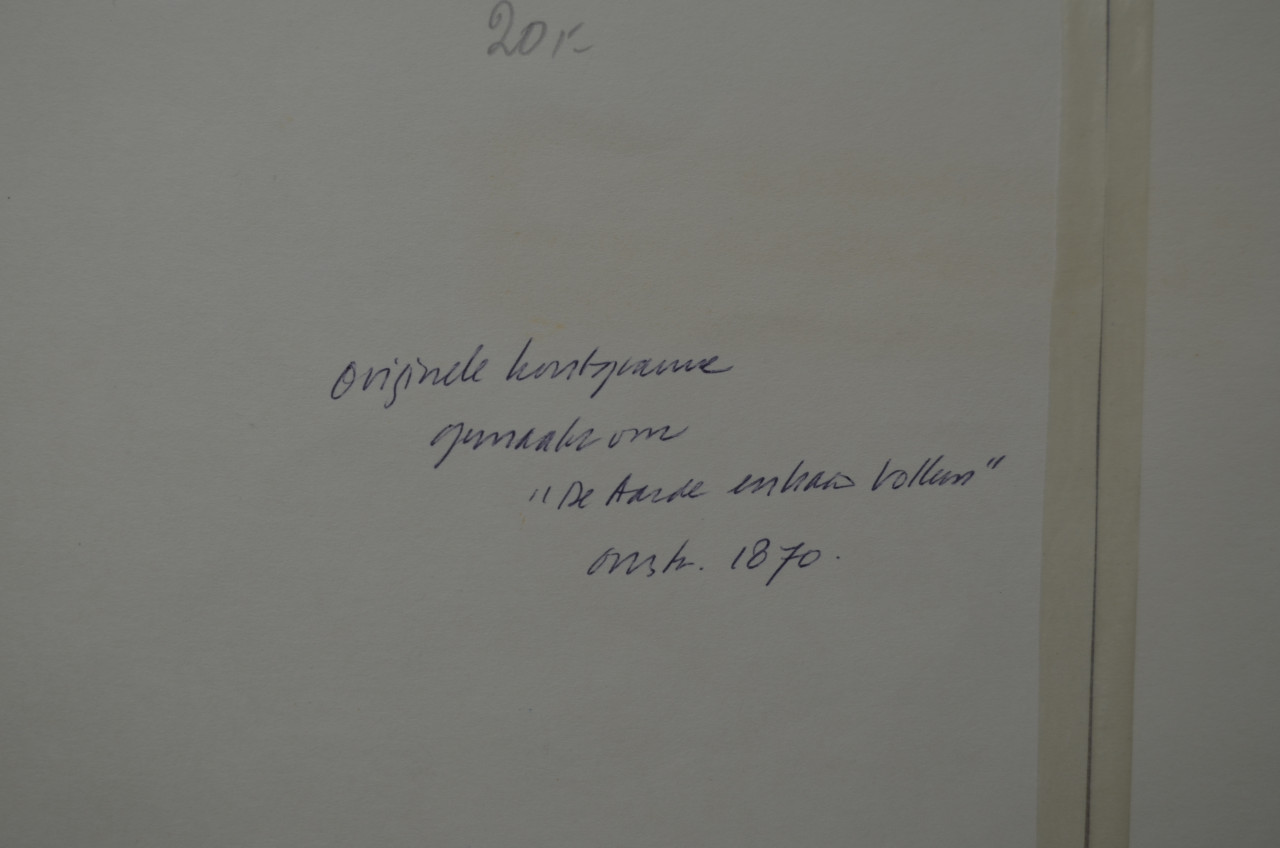 20,-
Originele houtgravure
gemaakt voor
"De Aarde en haar Volken"
omstr. 1870.